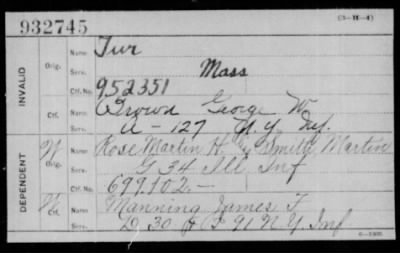 932745 (3-11-4)
INVALID Orig. Name
Serv. Mass
Ctf. No. 952351
Ctf. Name Brown George W.
Serv. A-127 N.Y. Inf.
DEPENDENT W Orig. Name Rose Martin H. Smith Martin
Serv. G 34 Ill Inf
Ctf. No. 699102.—
Ctf. Name Manning James T
Serv. D 30 & F 91 N.Y. Inf